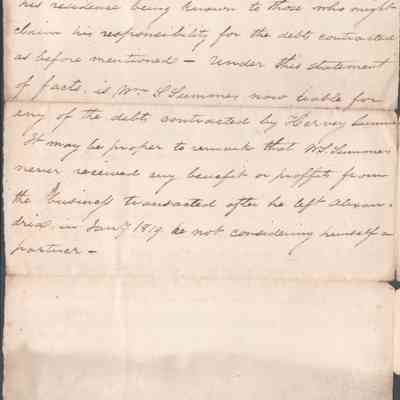 his residence being known to those who ought
claim his responsibility for the debts contracted
as before mentioned — Under this statement
of facts, is Wm S Summers now liable for
any of the debts contracted by Hervey Summe
It may be proper to remark that WS Summers
never received any benefit or proffits from
the business transacted after he left Alexan-
dria in Jany 1819 he not considering himself a
partner —